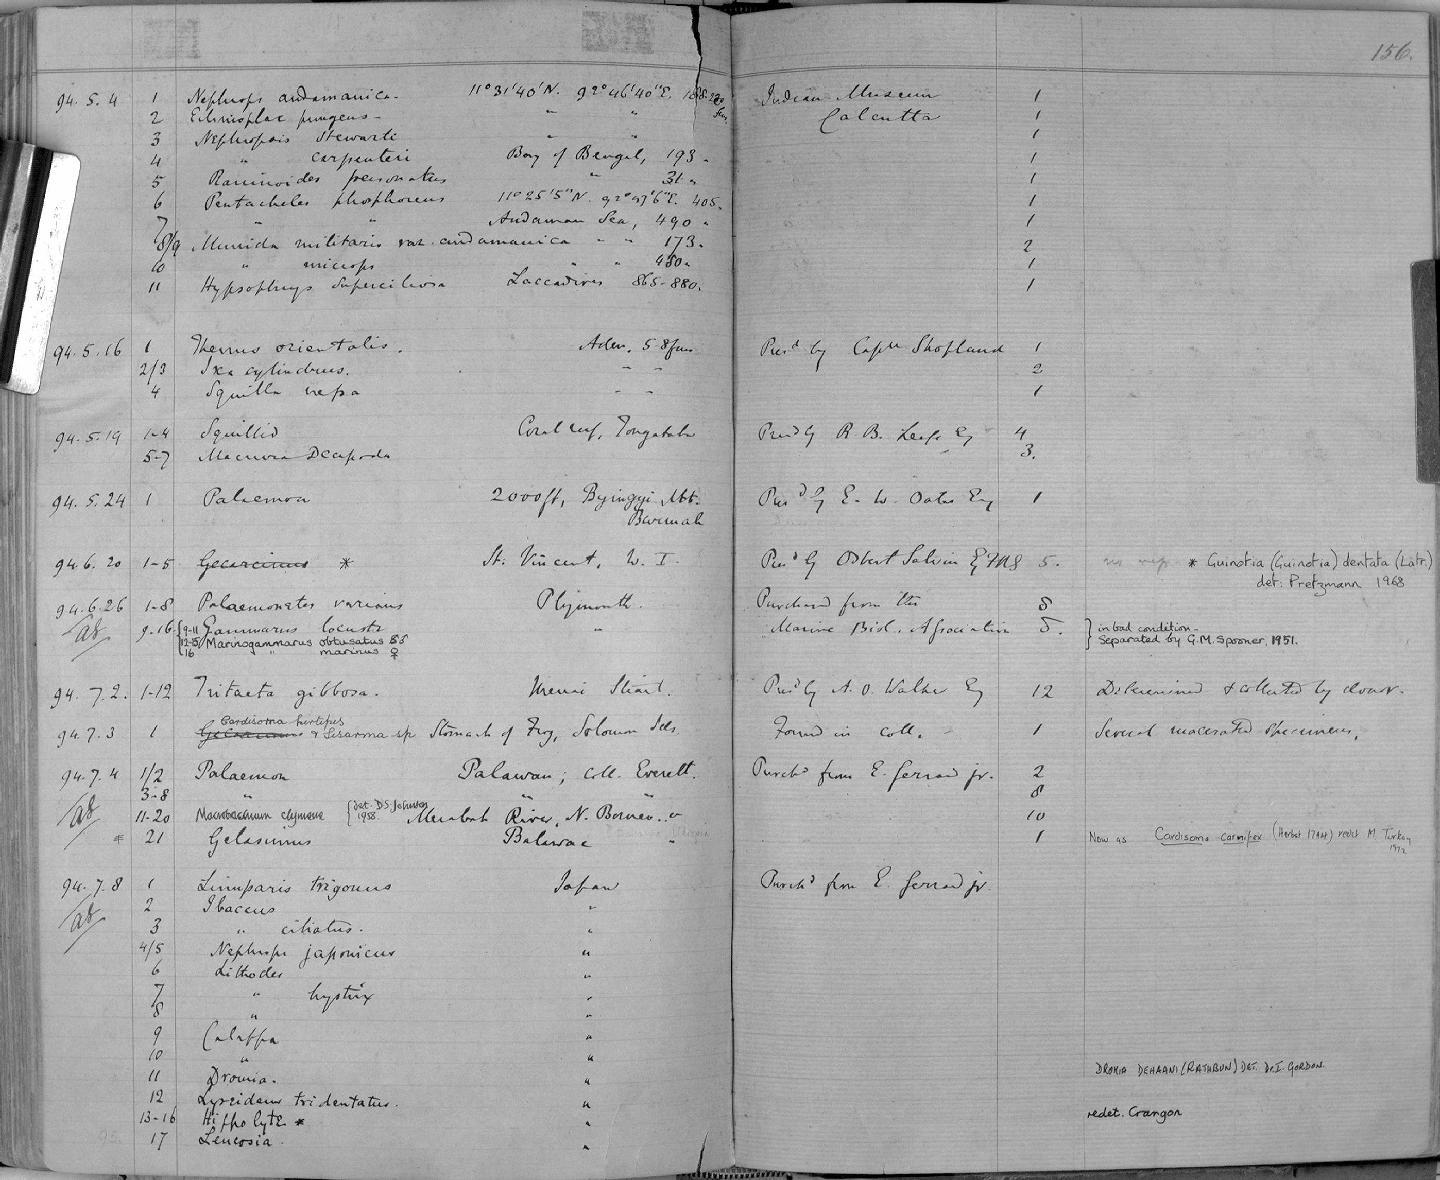 156.
94.5.4 1 Nephrops andamanica - 11°31'40"N. 92°46'40"E. 188-220 fms. Indian Museum 1
2 Echinoplax pungens - " " Calcutta 1
3 Nephropsis Stewarti " " 1
4 " carpenteri Bay of Bengal, 193 " 1
5 Raninoides personatus " 31 " 1
6 Pentacheles phosphorus 11°25'5"N. 92°47'6"E. 405 " 1
7 " " Andaman Sea, 490 " 1
8/9 Munida militaris var. andamanica " " 173 " 2
10 " microps " " 450 " 1
11 Hypsophrys superciliosa Laccadives 865-880. 1
94.5.16 1 Thenus orientalis. Aden, 5-8 fms Pres^d by Capt^n Shopland 1
2/3 Ixa cylindrus. " " 2
4 Squilla nepa " " 1
94.5.19 1-4 Squillid Coral reef, Tongatabu Pres^d by R. B. Leefe Esq 4
5-7 Macrura Decapoda " 3.
94.5.24 1 Palaemon 2000 ft, Byingyi Mt. Pres^d by E. W. Oates Esq 1
Burmah
94.6.20 1-5 Gecarcinus * St. Vincent, W. I. Pres^d by Osbert Salvin Esq FRS 5. no rep. * Guinotia (Guinotia) dentata (Latr.)
det: Pretzmann 1968
94.6.26 1-8 Palaemonetes varians Plymouth. Purchased from the 8
ab 9-16 {9-11 Gammarus locusta " Marine Biol. Association 8. } in bad condition -
12-15 Marinogammarus obtusatus ♂♂ Separated by G.M. Spooner, 1951.
16 " marinus ♀
94.7.2. 1-12 Tritaeta gibbosa. Menai Strait. Pres^d by A. O. Walker Esq 12 Determined & collected by donor.
Cardisoma hirtipes
94.7.3 1 Gelasimus & Sesarma sp Stomach of Frog, Solomon Isls Found in coll. 1 Several macerated specimens.
94.7.4 1/2 Palaemon Palawan; coll. Everett. Purch^d from E. Gerrard jr. 2
3-8 " " " 8
ab 11-20 Macrobrachium clymene {det. D.S. Johnson 1958. Merabah River, N. Borneo. " 10
* 21 Gelasimus Balawac " 1 Now as Cardisoma carnifex (Herbst 1794) redet M. Türkay 1972
94.7.8 1 Linuparis trigonus Japan Purch^d from E. Gerrard jr
ab 2 Ibaccus "
3 " ciliatus. "
4/5 Nephrops japonicus "
6 Lithodes "
7 " hystrix "
8 " "
9 Calappa "
10 " "
11 Dromia. " DROMIA DEHAANI (RATHBUN) DET. Dr. I. GORDON.
12 Lyreidus tridentatus. "
13-16 Hippolyte * " redet. Crangon
17 Leucosia. "